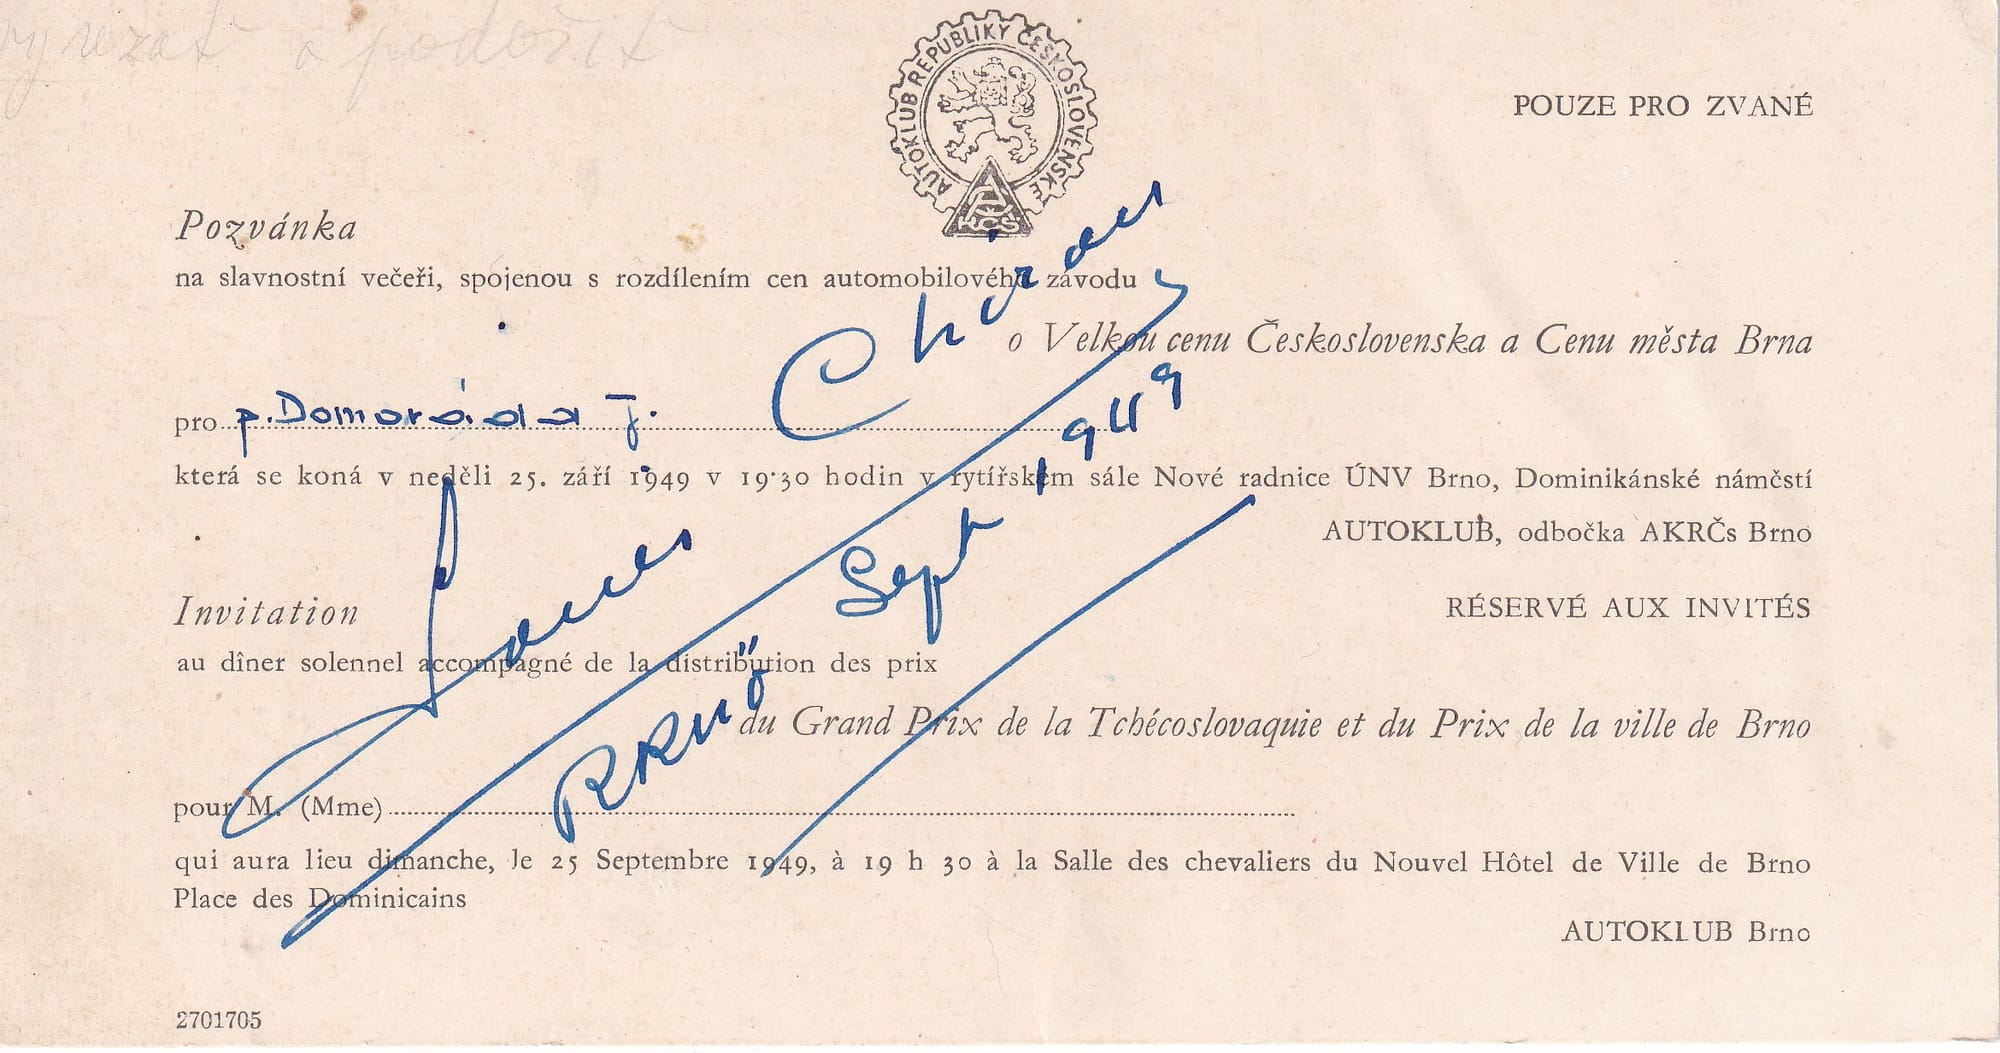 AUTOKLUB REPUBLIKY ČESKOSLOVENSKÉ
AKČS
POUZE PRO ZVANÉ
Pozvánka
na slavnostní večeři, spojenou s rozdílením cen automobilového závodu
o Velkou cenu Československa a Cenu města Brna
pro p. Domoráda J.
která se koná v neděli 25. září 1949 v 19·30 hodin v rytířském sále Nové radnice ÚNV Brno, Dominikánské náměstí
AUTOKLUB, odbočka AKRČs Brno
Louis Chiron
Brno Sept 1949
Invitation
RÉSERVÉ AUX INVITÉS
au dîner solennel accompagné de la distribution des prix
du Grand Prix de la Tchécoslovaquie et du Prix de la ville de Brno
pour M. (Mme)
qui aura lieu dimanche, le 25 Septembre 1949, à 19 h 30 à la Salle des chevaliers du Nouvel Hôtel de Ville de Brno
Place des Dominicains
AUTOKLUB Brno
2701705